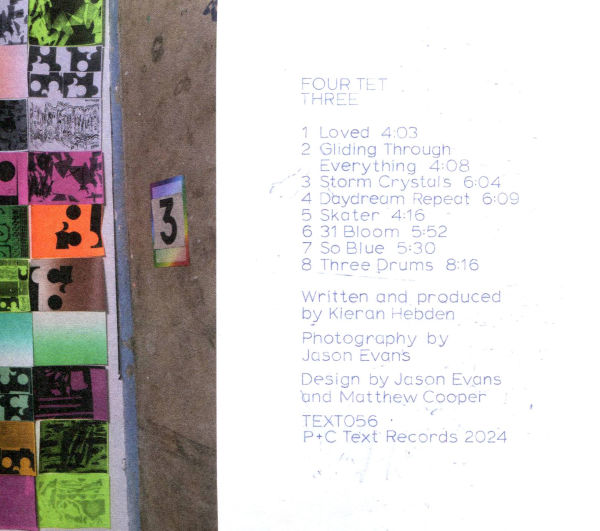 3
FOUR TET
THREE
1 Loved 4:03
2 Gliding Through
Everything 4:08
3 Storm Crystals 6:04
4 Daydream Repeat 6:09
5 Skater 4:16
6 31 Bloom 5:52
7 So Blue 5:30
8 Three Drums 8:16
Written and produced
by Kieran Hebden
Photography by
Jason Evans
Design by Jason Evans
and Matthew Cooper
TEXT056
P+C Text Records 2024